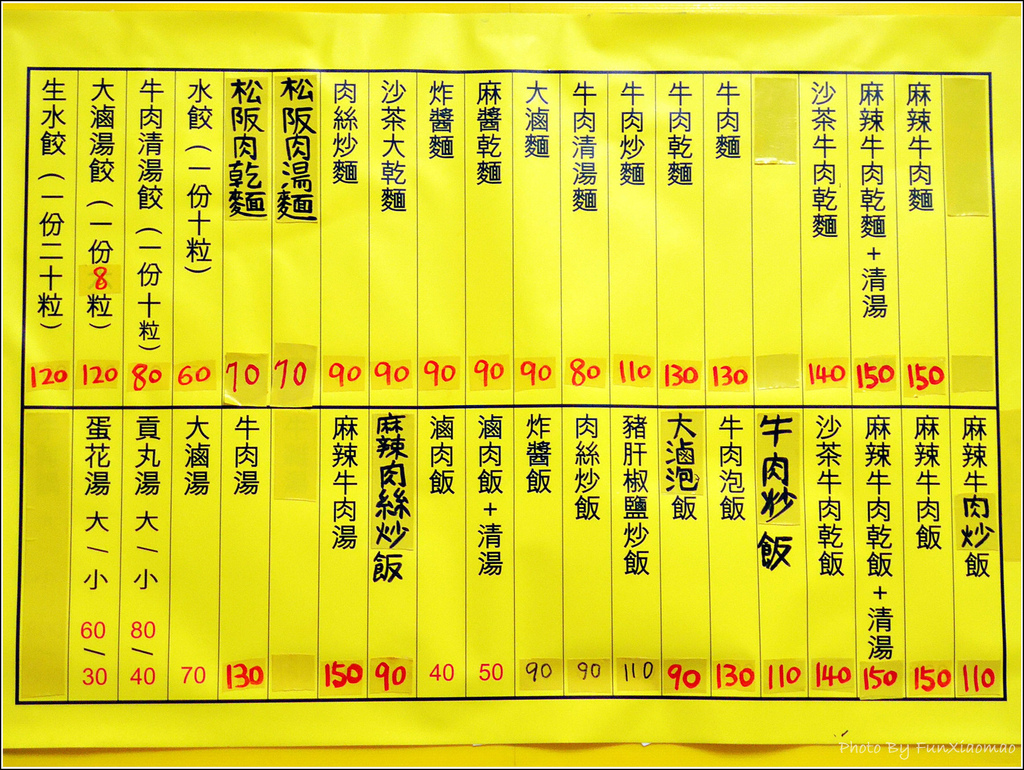 麻辣牛肉麵 150
麻辣牛肉乾麵+清湯 150
沙茶牛肉乾麵 140
牛肉麵 130
牛肉乾麵 130
牛肉炒麵 110
牛肉清湯麵 80
大滷麵 90
麻醬乾麵 90
炸醬麵 90
沙茶大乾麵 90
肉絲炒麵 90
松阪肉湯麵 70
松阪肉乾麵 70
水餃(一份十粒) 60
牛肉清湯餃(一份十粒) 80
大滷湯餃(一份8粒) 120
生水餃(一份二十粒) 120
麻辣牛肉炒飯 110
麻辣牛肉飯 150
麻辣牛肉乾飯+清湯 150
沙茶牛肉乾飯 140
牛肉炒飯 110
牛肉泡飯 130
大滷泡飯 90
豬肝椒鹽炒飯 110
肉絲炒飯 90
炸醬飯 90
滷肉飯+清湯 50
滷肉飯 40
麻辣肉絲炒飯 90
麻辣牛肉湯 150
牛肉湯 130
大滷湯 70
貢丸湯 大/小 80/40
蛋花湯 大/小 60/30
Photo By FunXiaomao